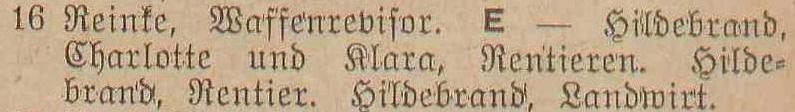 16 Reinke, Waffenrevisor. E — Hildebrand,
Charlotte und Klara, Rentieren. Hilde-
brand, Rentier. Hildebrand, Landwirt.